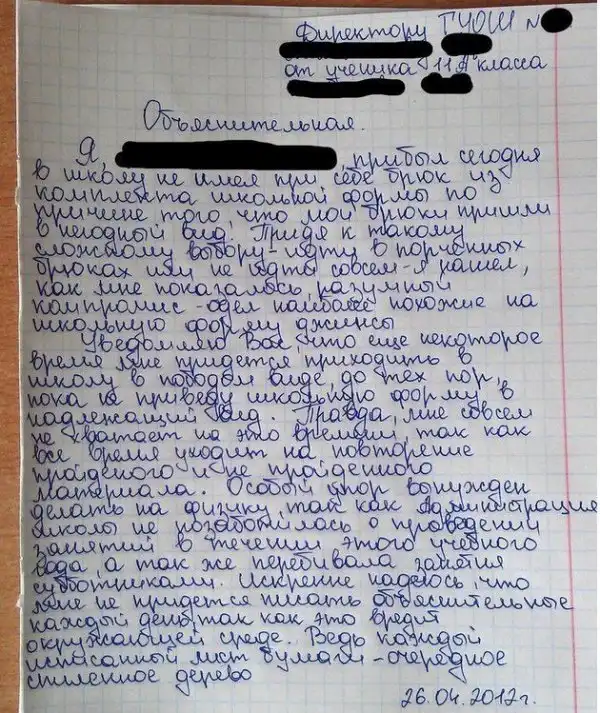 Директору ГУОШ №
от ученика 11 А класса
Объяснительная.
Я, , прибыл сегодня
в школу не имея при себе брюк из
комплекта школьной формы по
причине того, что мои брюки пришли
в негодный вид. Придя к такому
сложному выбору - идти в порченных
брюках или не идти совсем - я нашел,
как мне показалось, разумный
компромис - одел наиболее похожие на
школьную форму джинсы
Уведомляю Вас, что еще некоторое
время мне придется приходить в
школу в подобом виде, до тех пор,
пока не приведу школьную форму в
надлежащий вид. Правда, мне совсем
не хватает на это времени, так как
все время уходит на повторение
пройденого и не пройденного
материала. Особый упор вынужден
делать на физику, так как Администрация
школы не позаботилась о проведении
занятий в течении этого учебного
года, а так же перебивала занятия
субботниками. Искренне надеюсь, что
мне не придется писать объяснительные
каждый день, так как это вредит
окружающей среде. Ведь каждый
исписанный лист бумаги - очередное
спиленное дерево
26.04.2012г.